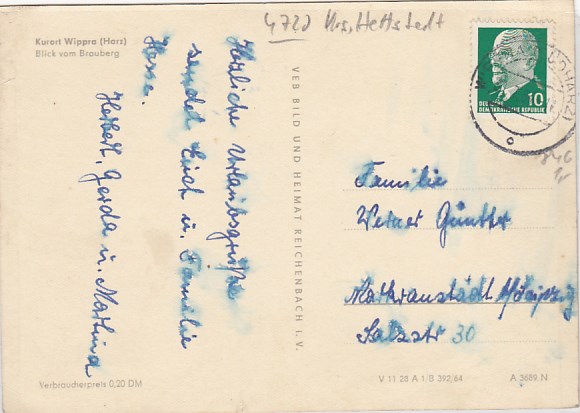 4720 Krs. Hettstedt
Kurort Wippra (Harz)
Blick vom Brauberg
Herzliche Urlaubsgrüße
sendet Euch u. Familie
Hesse.
Herbert, Gerda u. Martina
VEB BILD UND HEIMAT REICHENBACH I. V.
DEUTSCHE
DEMOKRATISCHE REPUBLIK
10
Familie
Werner Günther
Markranstädt/Leipzig
Salzstr 30
Verbraucherpreis 0,20 DM
V 11 28 A 1 B 392/64
A 3689 N